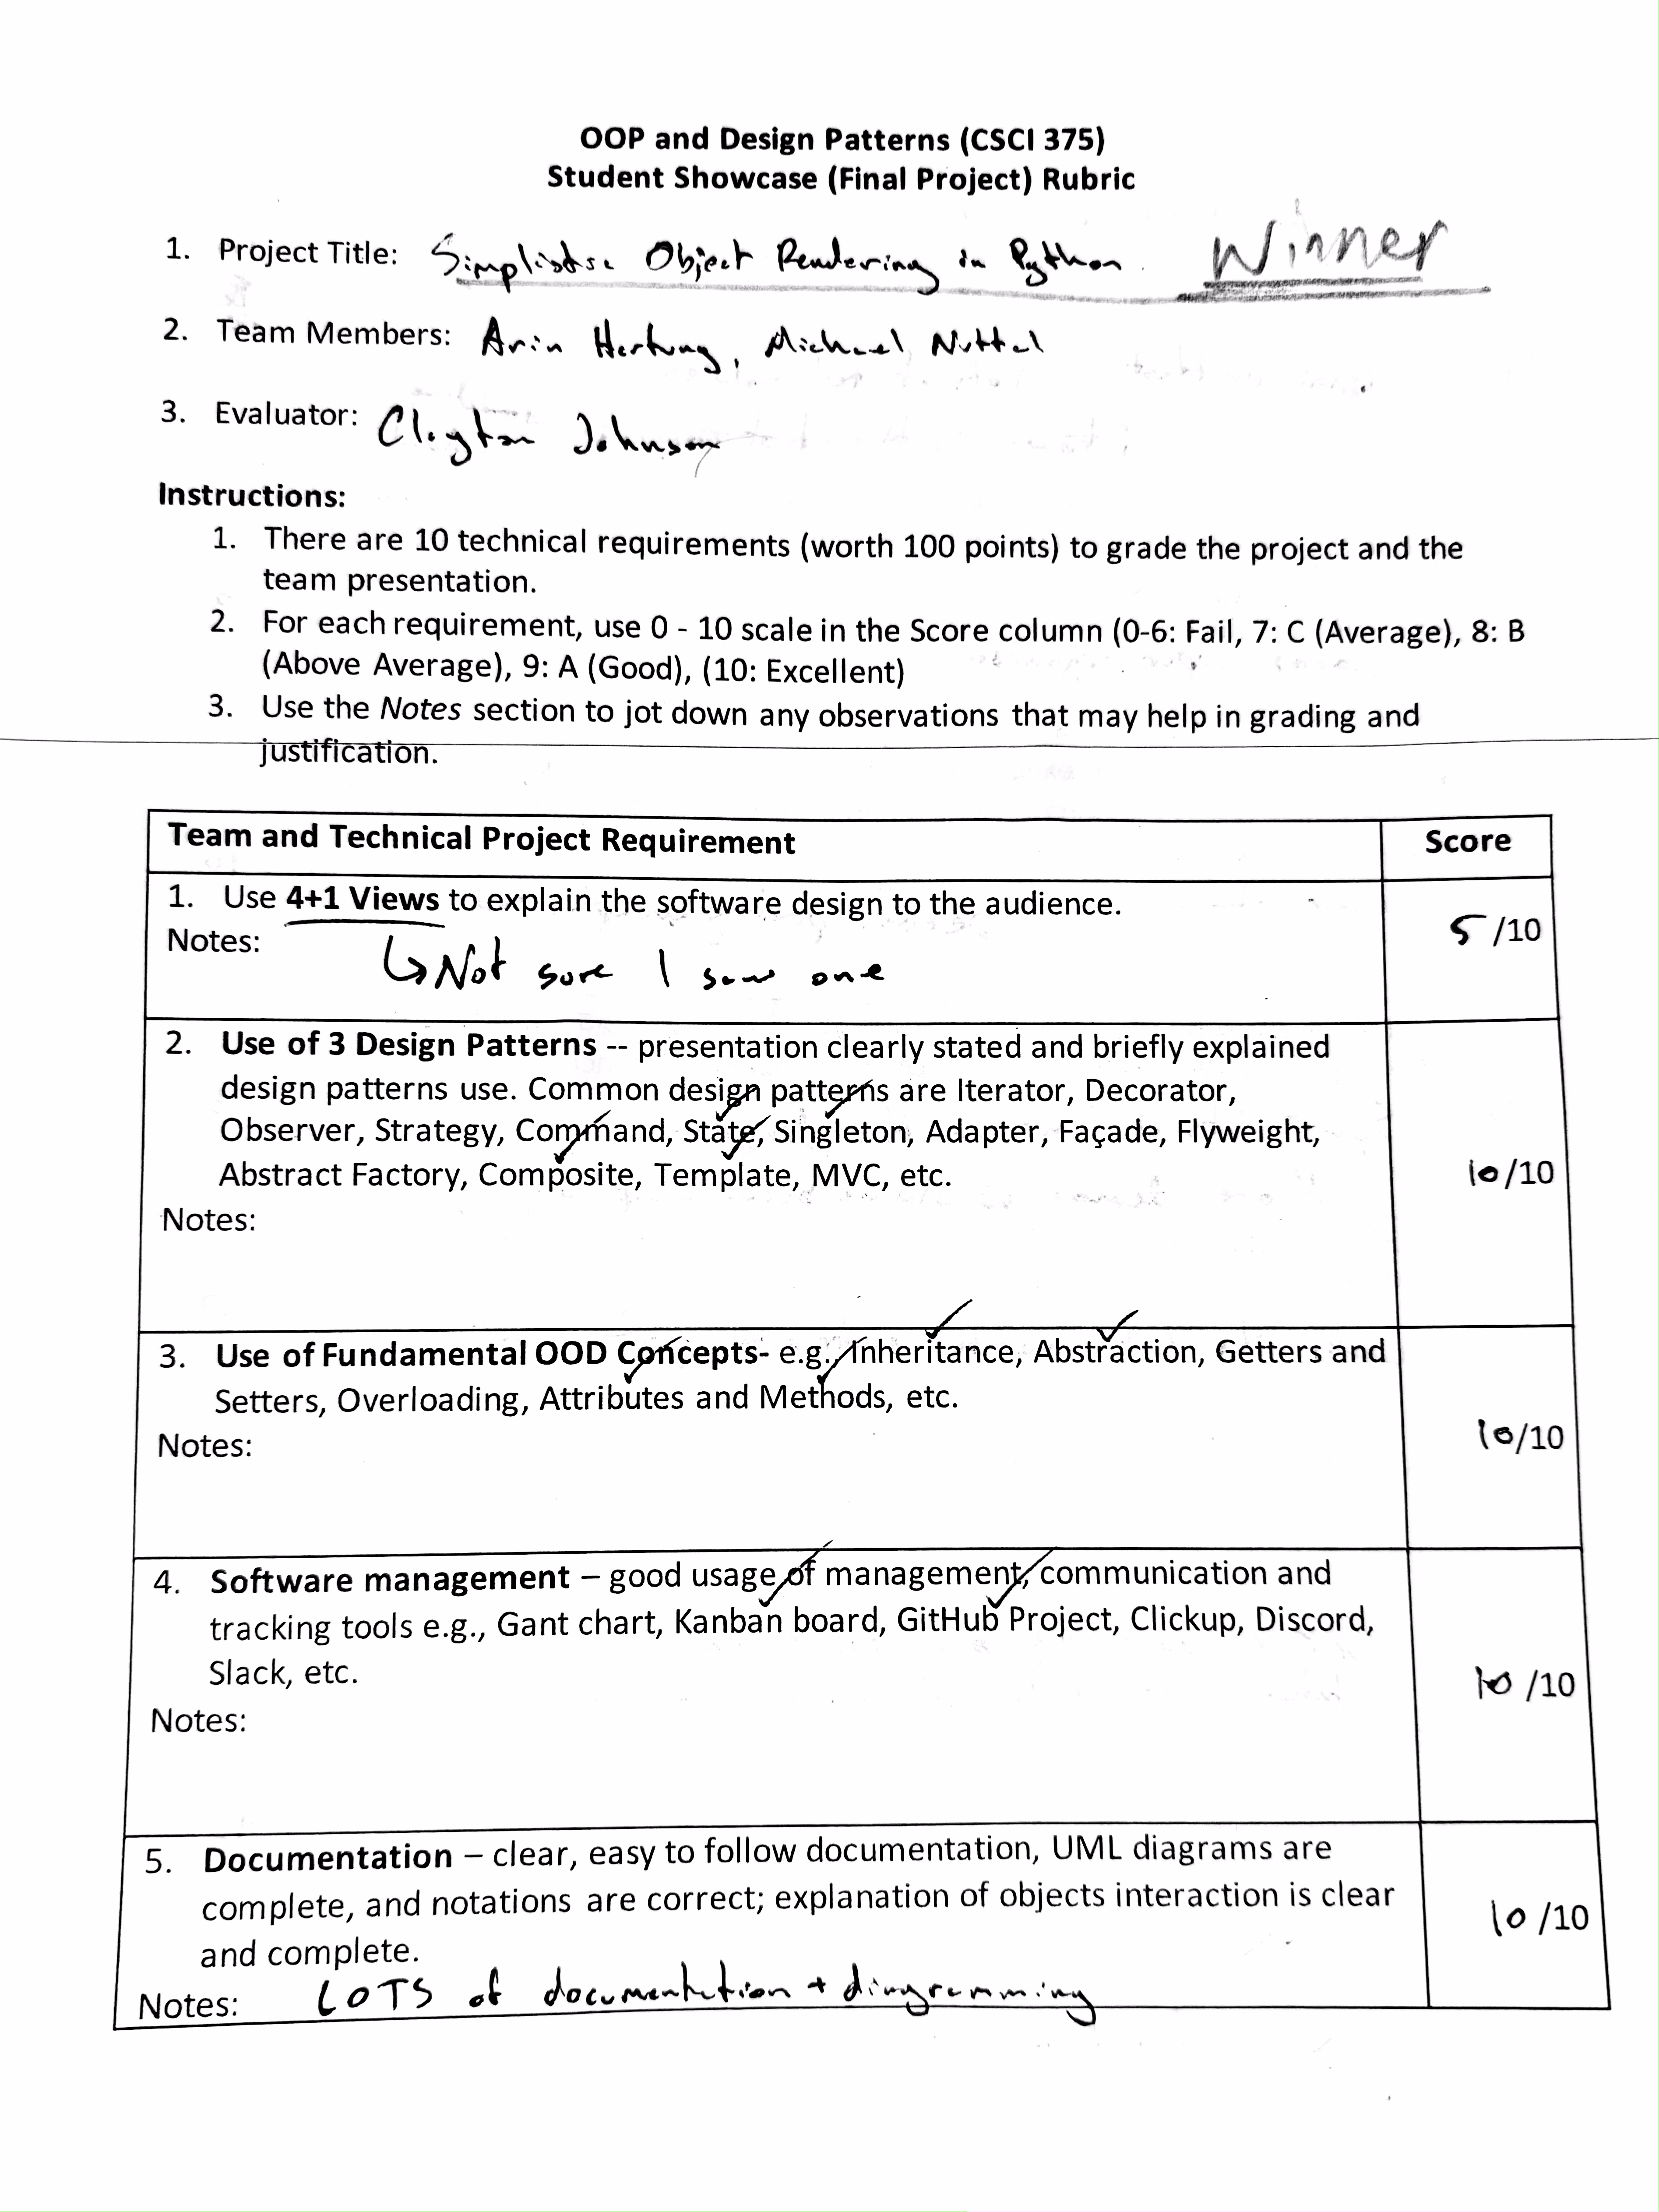 OOP and Design Patterns (CSCI 375)
Student Showcase (Final Project) Rubric
1. Project Title: Object Rendering in Python Winner
2. Team Members: Arin Hartung, Michael Nuttal
3. Evaluator: Clayton Johnson
Instructions:
1. There are 10 technical requirements (worth 100 points) to grade the project and the
team presentation.
2. For each requirement, use 0 - 10 scale in the Score column (0-6: Fail, 7: C (Average), 8: B
(Above Average), 9: A (Good), (10: Excellent)
3. Use the Notes section to jot down any observations that may help in grading and
justification.
Team and Technical Project Requirement Score
1. Use 4+1 Views to explain the software design to the audience.
Notes: ↳ Not sure I saw one
5 /10
2. Use of 3 Design Patterns -- presentation clearly stated and briefly explained
design patterns use. Common design patterns are Iterator, Decorator,
Observer, Strategy, Command, State, Singleton, Adapter, Façade, Flyweight,
Abstract Factory, Composite, Template, MVC, etc.
Notes:
10/10
3. Use of Fundamental OOD Concepts- e.g., Inheritance, Abstraction, Getters and
Setters, Overloading, Attributes and Methods, etc.
Notes:
10/10
4. Software management – good usage of management, communication and
tracking tools e.g., Gant chart, Kanban board, GitHub Project, Clickup, Discord,
Slack, etc.
Notes:
10 /10
5. Documentation – clear, easy to follow documentation, UML diagrams are
complete, and notations are correct; explanation of objects interaction is clear
and complete.
Notes: LOTS of documentation + diagramming
10 /10